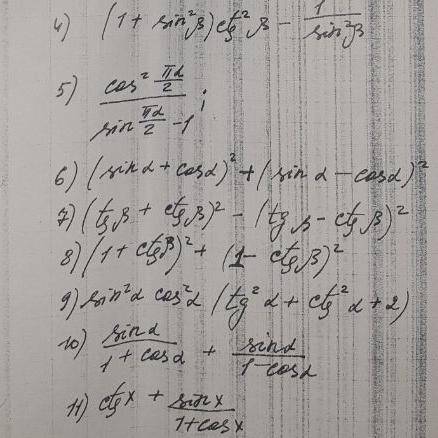 4) (1 + sin²β) ctg²β − 1/sin²β
5) cos² πα/2 / sin πα/2 − 1 ;
6) (sin α + cos α)² + (sin α − cos α)²
7) (tg β + ctg β)² − (tg β − ctg β)²
8) (1 + ctg β)² + (1 − ctg β)²
9) sin²α cos²α (tg²α + ctg²α + 2)
10) sin α / 1 + cos α + sin α / 1 − cos α
11) ctg x + sin x / 1 + cos x